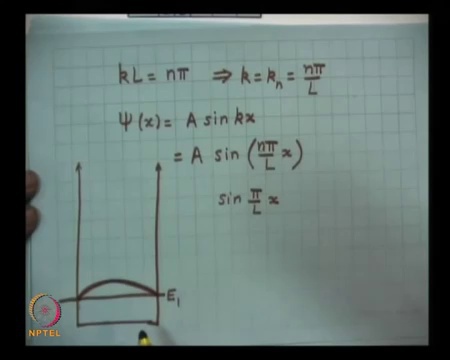 kL = nπ ⇒ k = kₙ = nπ/L
Ψ(x) = A sin kx
= A sin (nπ/L x)
sin π/L x
E₁
NPTEL